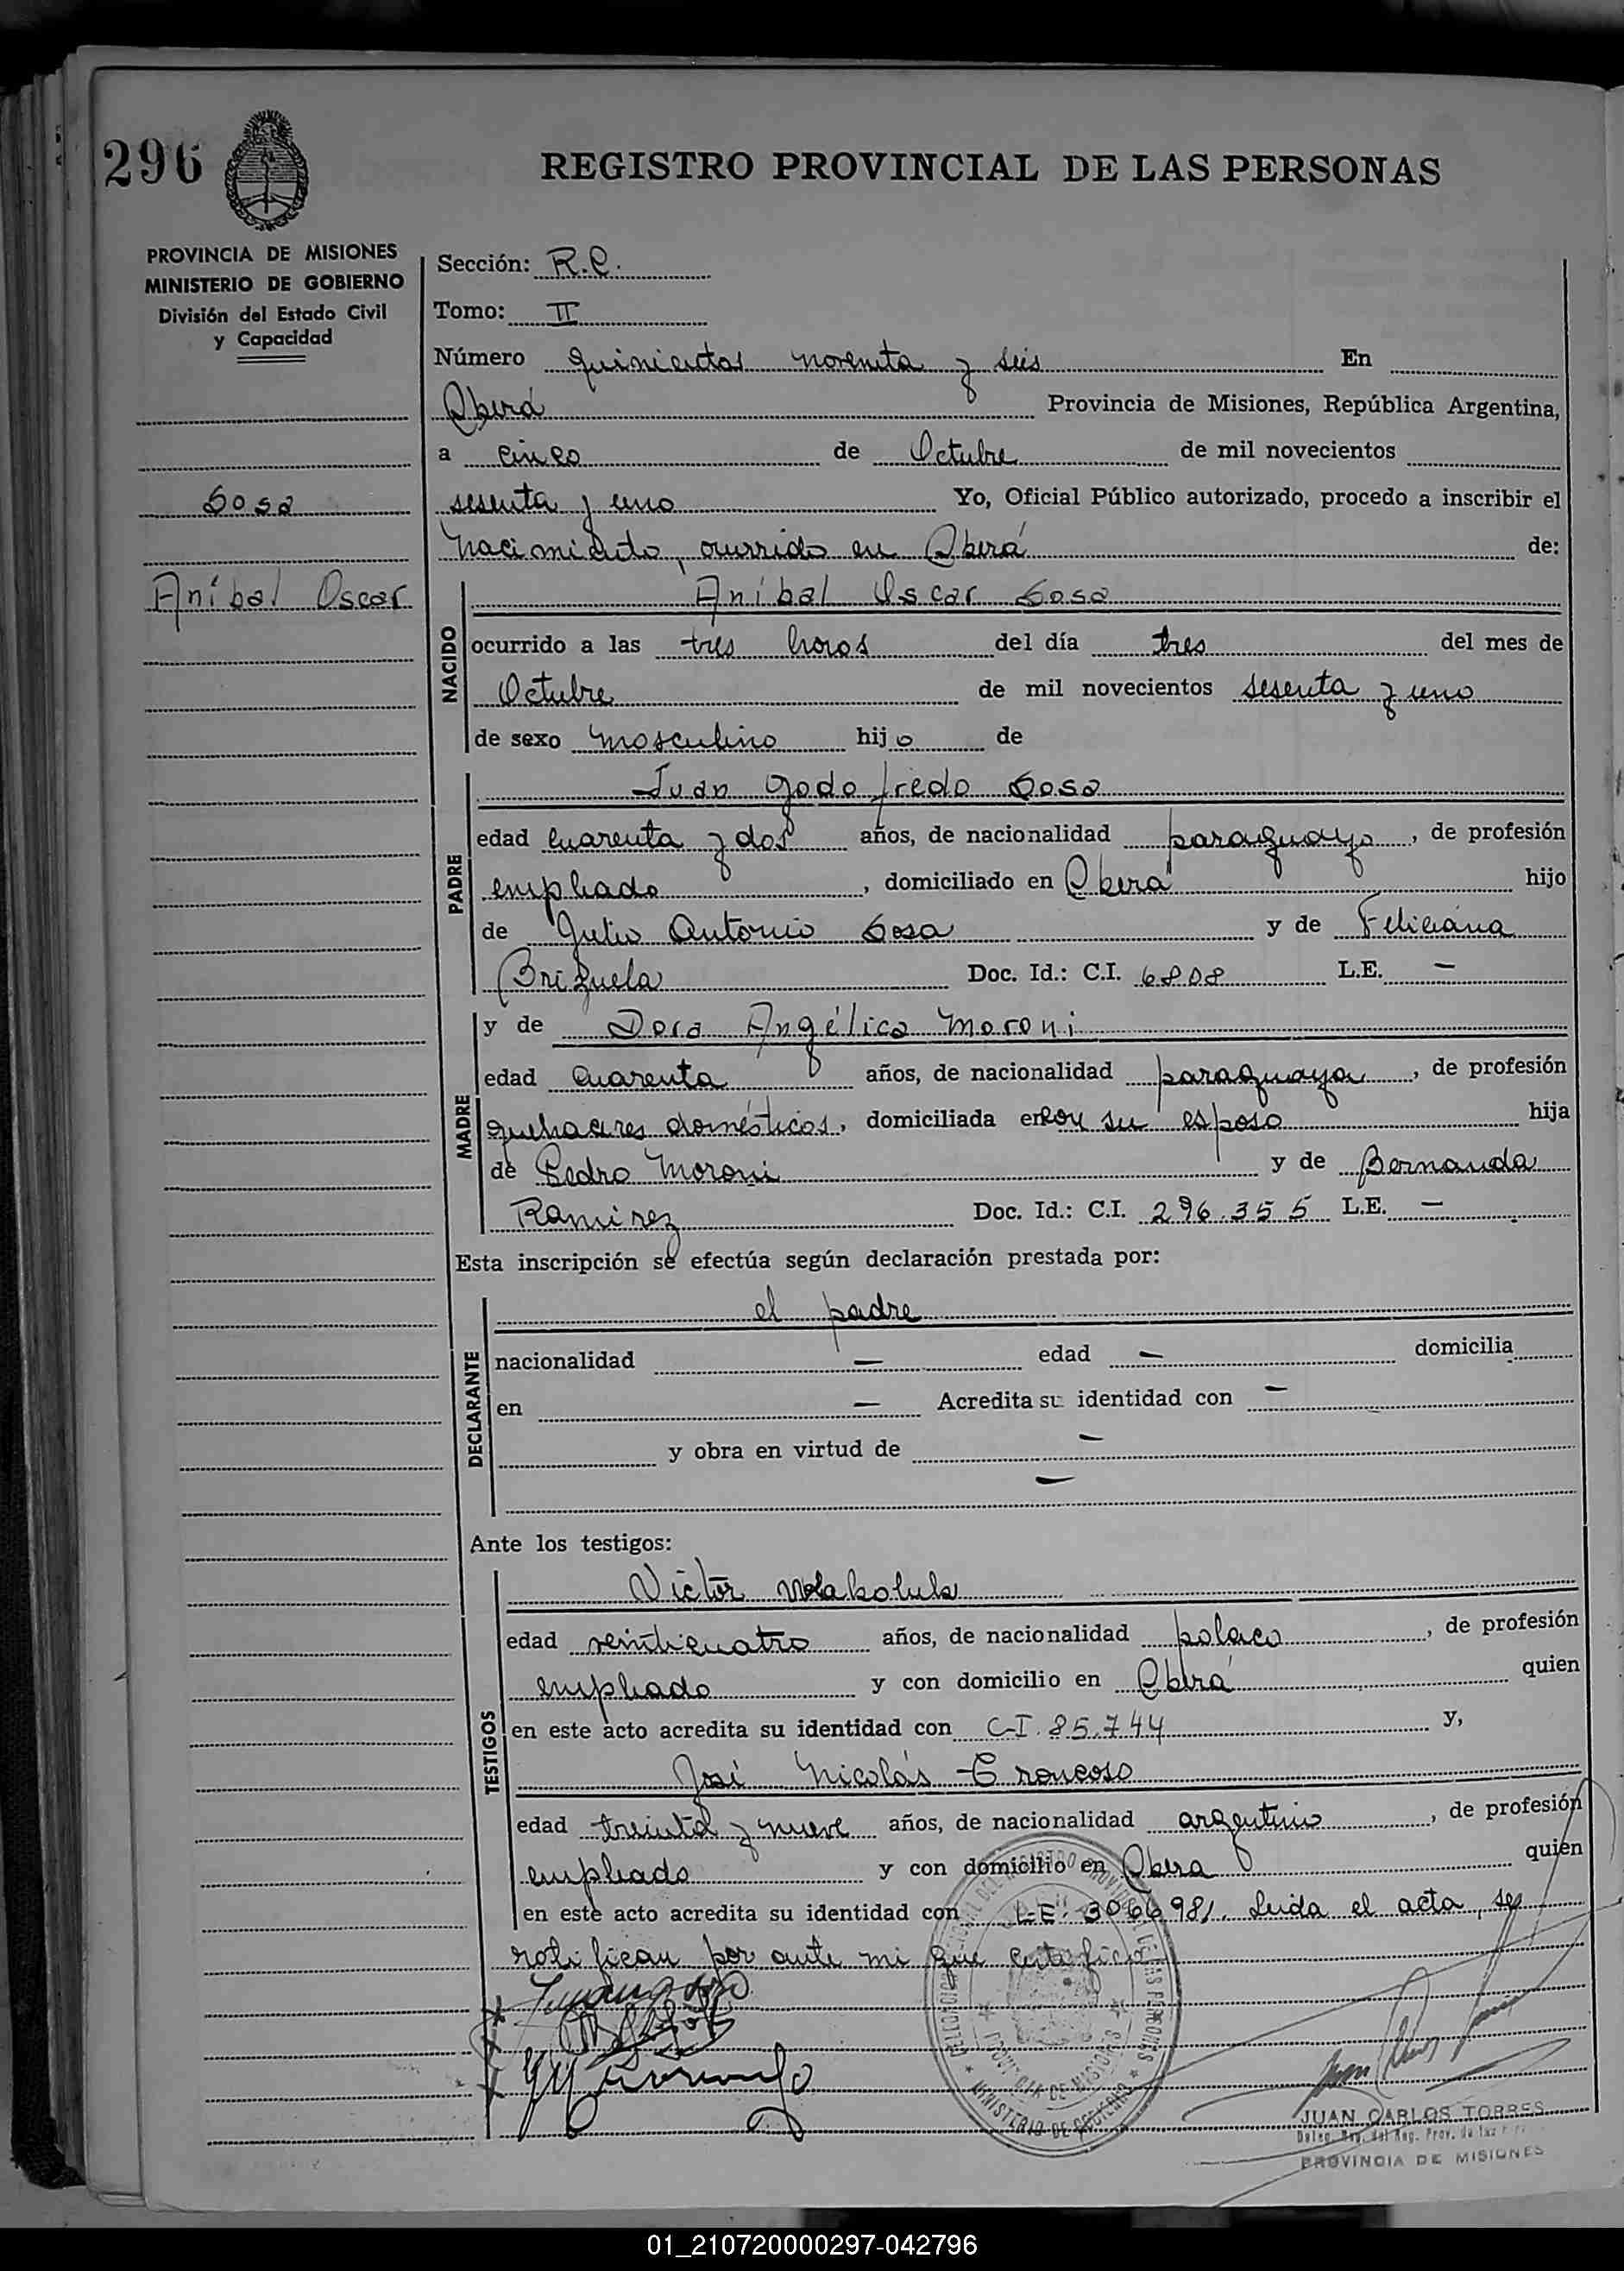 296
REGISTRO PROVINCIAL DE LAS PERSONAS
PROVINCIA DE MISIONES
MINISTERIO DE GOBIERNO
División del Estado Civil
y Capacidad
Sosa
Aníbal Oscar
Sección: R.C.
Tomo: II
Número quinientos noventa y seis En
Oberá Provincia de Misiones, República Argentina,
a cinco de Octubre de mil novecientos
sesenta y uno Yo, Oficial Público autorizado, procedo a inscribir el
nacimiento, ocurrido en Oberá de:
NACIDO
Aníbal Oscar Sosa
ocurrido a las tres horas del día tres del mes de
Octubre de mil novecientos sesenta y uno
de sexo masculino hijo de
PADRE
Juan Godofredo Sosa
edad cuarenta y dos años, de nacionalidad paraguayo, de profesión
empleado, domiciliado en Oberá hijo
de Julio Antonio Sosa y de Feliciana
Brizuela Doc. Id.: C.I. 6808 L.E. —
MADRE
y de Dora Angélica Moroni
edad cuarenta años, de nacionalidad paraguaya, de profesión
quehaceres domésticos, domiciliada en con su esposo hija
de Pedro Moroni y de Bernarda
Ramirez Doc. Id.: C.I. 296.355 L.E. —
Esta inscripción se efectúa según declaración prestada por:
DECLARANTE
el padre
nacionalidad — edad — domicilia
en — Acredita su identidad con —
y obra en virtud de —
—
Ante los testigos:
TESTIGOS
Victor
edad veinticuatro años, de nacionalidad polaco, de profesión
empleado y con domicilio en Oberá quien
en este acto acredita su identidad con C.I. 85.744 y,
José Nicolás Troncoso
edad treinta y nueve años, de nacionalidad argentino, de profesión
empleado y con domicilio en Oberá quien
en este acto acredita su identidad con L.E. 3066981. Leida el acta, se
ratifican por ante mi que certifico
PROVINCIA DE MISIONES
MINISTERIO DE GOBIERNO
JUAN CARLOS TORRES
PROVINCIA DE MISIONES
01_210720000297-042796